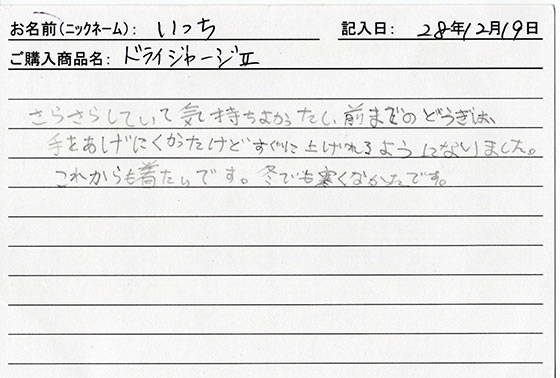 お名前(ニックネーム): いっち 記入日: 28年12月19日
ご購入商品名: ドライジャージⅡ
さらさらしていて気持ちよかったし、前までのどうぎは、
手をあげにくかったけどすぐに上げれるようになりました。
これからも着たいです。冬でも寒くなかたです。